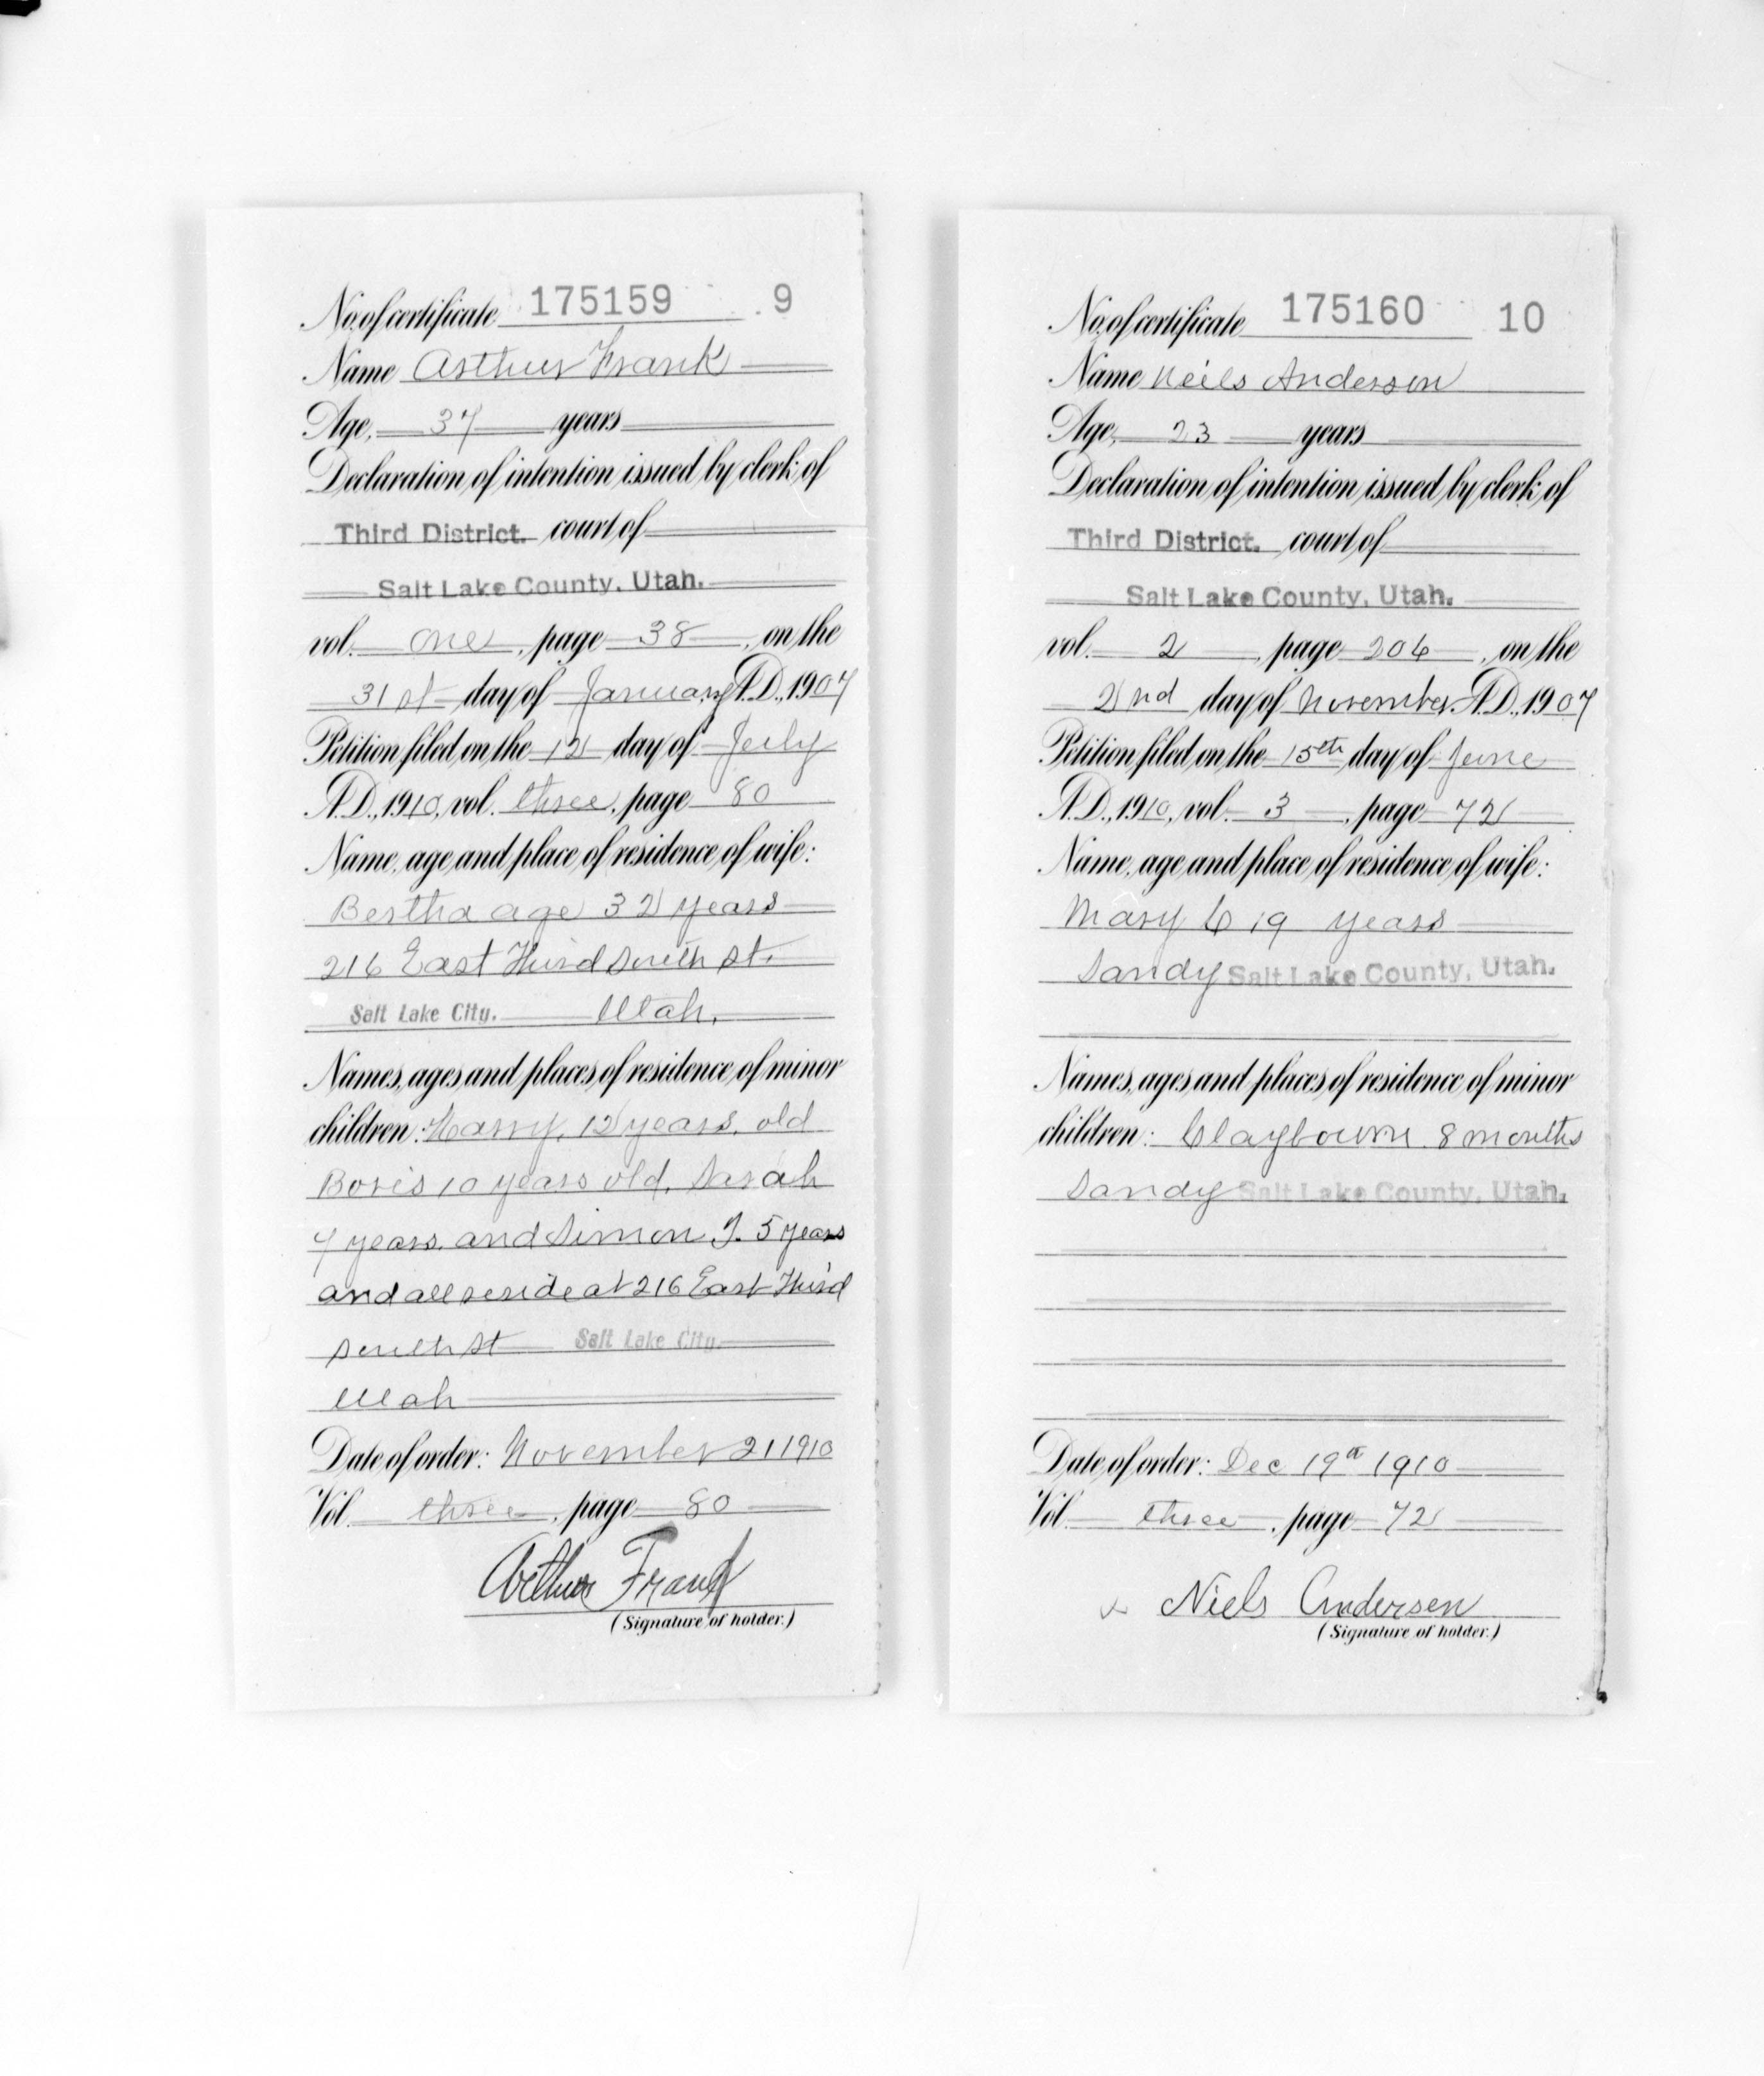 No. of certificate 175159 9
Name Arthur Frank
Age, 37 years
Declaration of intention issued by clerk of
Third District. court of
Salt Lake County, Utah.
vol. one, page 38, on the
31st day of January A.D., 1907
Petition filed on the 12 day of July
A.D., 1910, vol. three, page 80
Name, age and place of residence of wife:
Bertha age 32 years
216 East Third South St.
Salt Lake City. Utah.
Names, ages and places of residence of minor
children: Harry, 12 years, old
Boris 10 years old, Sarah
7 years. and Simon J. 5 years
and all reside at 216 East Third
South St Salt Lake City.
Utah
Date of order: November 21 1910
Vol. three, page 80
Arthur Frank
(Signature of holder.)
No. of certificate 175160 10
Name Neils Anderson
Age, 23 years
Declaration of intention issued by clerk of
Third District. court of
Salt Lake County, Utah.
vol. 2, page 206, on the
2nd day of November A.D., 1907
Petition filed on the 15th day of June
A.D., 1910, vol. 3, page 72
Name, age and place of residence of wife:
Mary C 19 years
Sandy Salt Lake County, Utah.
Names, ages and places of residence of minor
children: Claybourn 8 months
Sandy Salt Lake County, Utah.
Date of order: Dec 19th 1910
Vol. three, page 72
x Niels Andersen
(Signature of holder.)